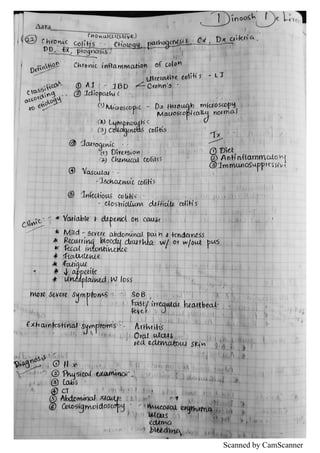 Dinoosh De Livera
(nonulcerative)
(Q2) Chronic Colitis Etiology, pathogenesis, Cx, Dx criteria,
DD, Rx, prognosis.
Definition Chronic inflammation of colon
Classification according to etiology
Ulcerative colitis - LI
① AI IBD Crohn's
② Idiopathic
(1) Microscopic - Dx through microscopy
Macroscopically normal
(2) Lymphocytic
(3) Collagenous colitis
Tx
① Diet
② Antiinflammatory
③ Immunosuppressive
③ Iatrogenic
(1) Diversion
(2) Chemical colitis
④ Vascular
- Ischaemic colitis
⑤ Infectious colitis
- clostridium difficile colitis
Clinic * Variable & depend on cause
* Mild - severe abdominal pain & tenderness
* Recurring bloody diarrhea w/ or w/out pus
* Fecal incontinence
* Flatulence
* fatigue
* ↓ appetite
* unexplained W loss
more severe symptoms SOB
Fast/irregular heartbeat
fever
Extraintestinal symptoms Arthritis
Oral ulcers
red edematous skin
Diagnosis ① Hx
② Physical examination
③ Labs
④ CT
⑤ Abdominal Xray
⑥ Colosigmoidoscopy - mucosal erythema
ulcers
edema
bleeding
Scanned by CamScanner